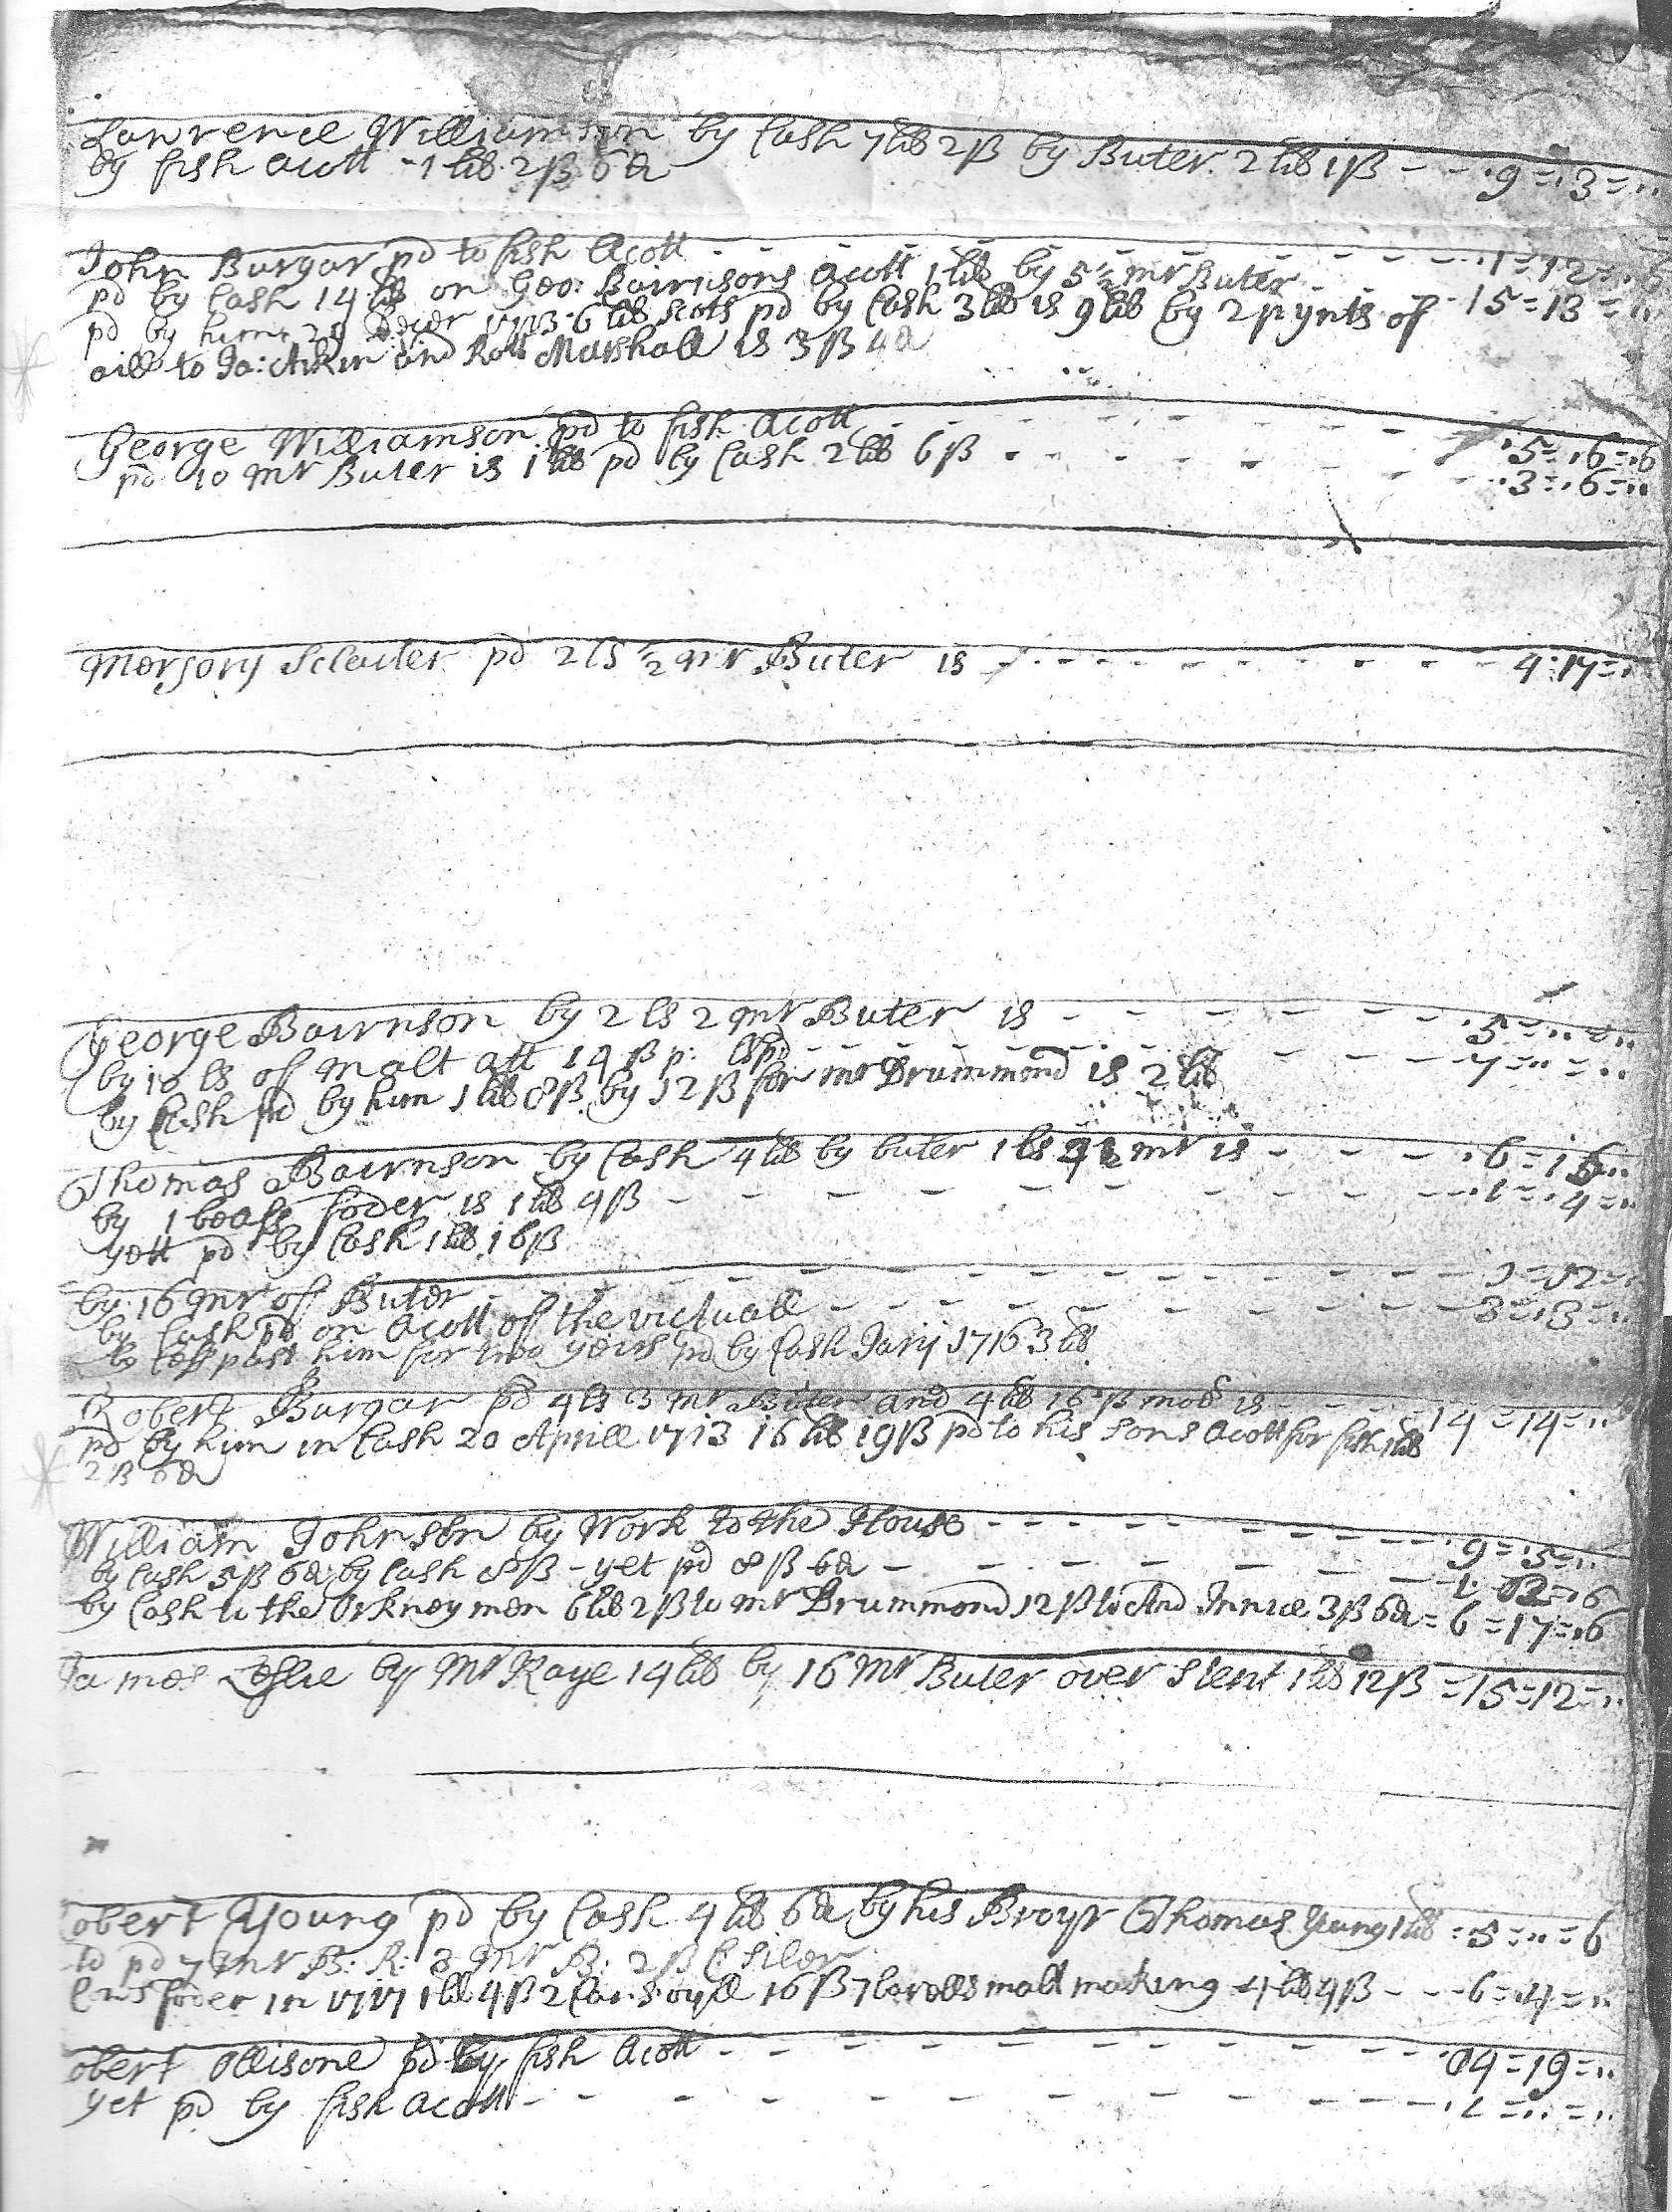 Lawrence Williamson by Cash 7 lib 2 ß by Buter 2 lib 1 ß - - .9=.3=..
by fish acott - 1 lib 2 ß 6 d
John Burgar pd to fish Acott - - - - - - .1=12=.6
pd by Cash 14 lib on Geo: Bairnsons acott 1 lib by 5 ½ mr Buter - - - 15=13=..
pd by him 29 1713 6 lib scots pd by Cash 3 lib is 9 lib by 2 pynts of
aill to Ja: Aikin and Rott Marshall is 3 ß 4 d
George Williamson pd to fish acott - - - - - .5=.6=.6
pd to mr Buter is 1 lib pd by Cash 2 lib 6 ß - - - - - .3=.6=..
Morjory Sclater pd 2 ls ½ mr Buter is - - - - - - - 4:17=.
George Bairnson by 2 ls 2 mr Buter is - - - - - - .5=..=..
by 10 ls of malt att 14 ß p: lspd - - - - - - 7=..=..
by Cash pd by him 1 lib 8 ß by 12 ß for mr Drummond is 2 lib
Thomas Bairnson by Cash 4 lib by buter 1 ls mr is - - - .6=1
by 1 beass foder is 1 lib 4 ß - - - - - - - .1=.4=..
yett pd by Cash 1 lib 16 ß
by 16 mr of Buter - - - - - - - 1=12=.
by Cash pd on acott of the victuall - - - - - - 8=13=..
past him for two years pd by Cash Jarij 1716 3 lib
Robert Burgar pd 4 ls 3 mr Buter and 4 lib 16 ß mod is - - - - 14=14=..
pd by him in Cash 20 Aprill 1713 16 lib 19 ß pd to his sons acott for fish 1 lib
2 ß 6 d
William Johnson by Work to the House - - - - - - .9=.5=..
by Cash 5 ß 6 d by Cash 8 ß - yet pd 8 ß 6 d - - - - - - 1: =.6
by Cash to the Orkney men 6 lib 2 ß to mr Drummond 12 ß to And Innice 3 ß 6 d = 6=17=.6
James Leslie by Mr Kaye 14 lib by 16 mr Buter over stent 1 lib 12 ß = 15=12=..
obert Young pd by Cash 4 lib 6 d by his Broyr Thomas Young 1 lib : 5=..=6
pd 7 mr B: R: 3 mr B: 2 ß
foder in 1717 1 lib 4 ß 2 oyll 16 ß 7 barolls malt making 4 lib 4 ß - - - 6=.4=..
obert ollisone pd by fish acott - - - - - - - 04=19=..
yet pd by fish acott - - - - - - - .1=..=..